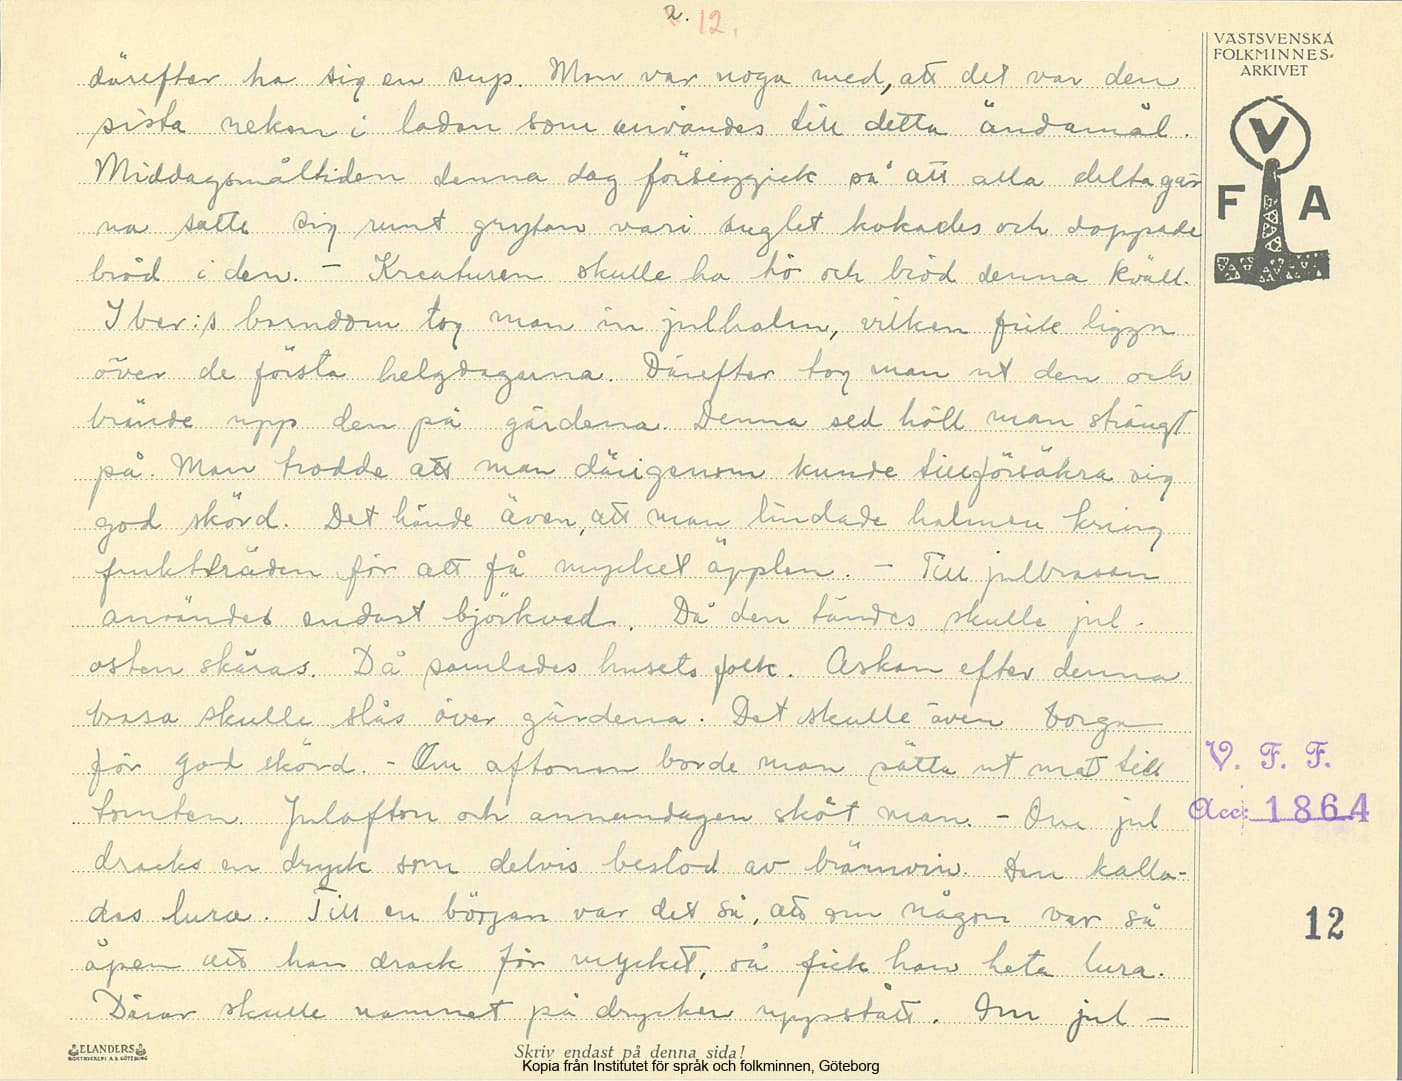 2. 12.
VÄSTSVENSKA
FOLKMINNES-
ARKIVET
V
F A
därefter ha sig en sup. Man var noga med, att det var den
sista neken i ladan som användes till detta ändamål.
Middagsmåltiden denna dag försiggick så att alla deltagar
na satte sig runt grytan vari suglet kokades och doppade
bröd i den. - Kreaturen skulle ha hö och bröd denna kväll.
I ber:s barndom tog man in julhalm, vilken fick ligga
över de första helgdagarna. Därefter tog man ut den och
brände upp den på gärdena. Denna sed höll man strängt
på. Man trodde att man därigenom kunde tillförsäkra sig
god skörd. Det hände även, att man lindade halmen kring
fruktträden för att få mycket äpplen. - Till julbrasan
användes endast björkved. Då den tändes skulle jul-
osten skäras. Då samlades husets folk. Askan efter denna
brasa skulle slås över gärdena. Det skulle även borga
för god skörd. - Om aftonen borde man sätta ut mat till
tomten. Julafton och annandagen sköt man. - Om jul
dracks en dryck som delvis bestod av brännvin. Den kalla-
des lura. Till en början var det så, att om någon var så
åpen att han drack för mycket, så fick han heta lura.
Därav skulle namnet på drycken uppstått. Om jul -
V. F. F.
Acc: 1864
12
ELANDERS
BOKTRYCKERI A.B. GÖTEBORG
Skriv endast på denna sida!
Kopia från Institutet för språk och folkminnen, Göteborg